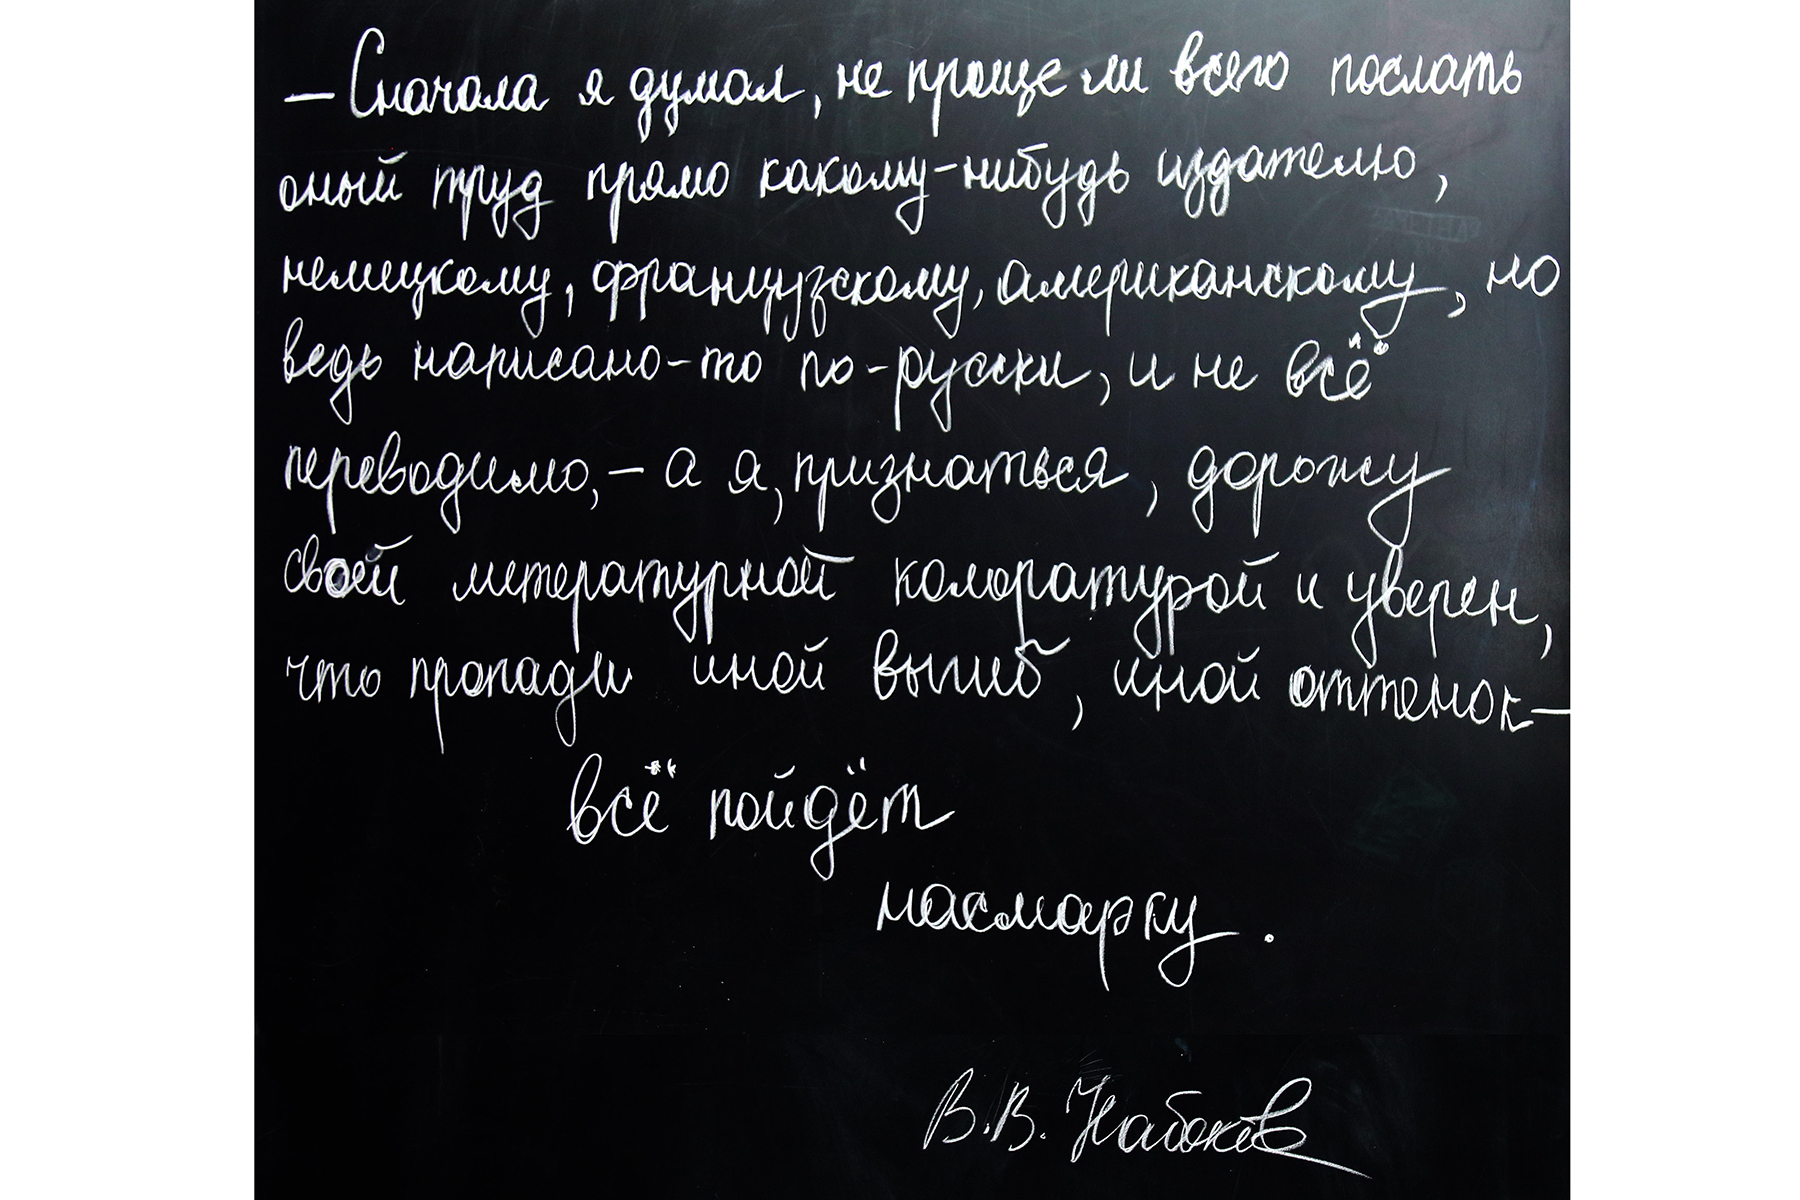 — Сначала я думал, не проще ли всего послать
оный труд прямо какому-нибудь издателю,
немецкому, французскому, американскому, но
ведь написано-то по-русски, и не всё
переводимо, — а я, признаться, дорожу
своей литературной колоратурой и уверен,
что пропади иной выгиб, иной оттенок —
всё пойдёт
насмарку.
В.В. Набоков